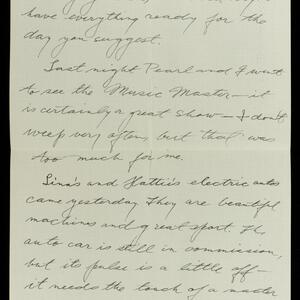 have everything ready for the
day you suggest.
Last night Pearl and I went
to see the Music Master — it
is certainly a great show — I don't
weep very often, but that was
too much for me.
Lina's and Hattie's electric autos
came yesterday. They are beautiful
machines and great sport. The
auto car is still in commission,
but its pulse is a little off —
it needs the touch of a master